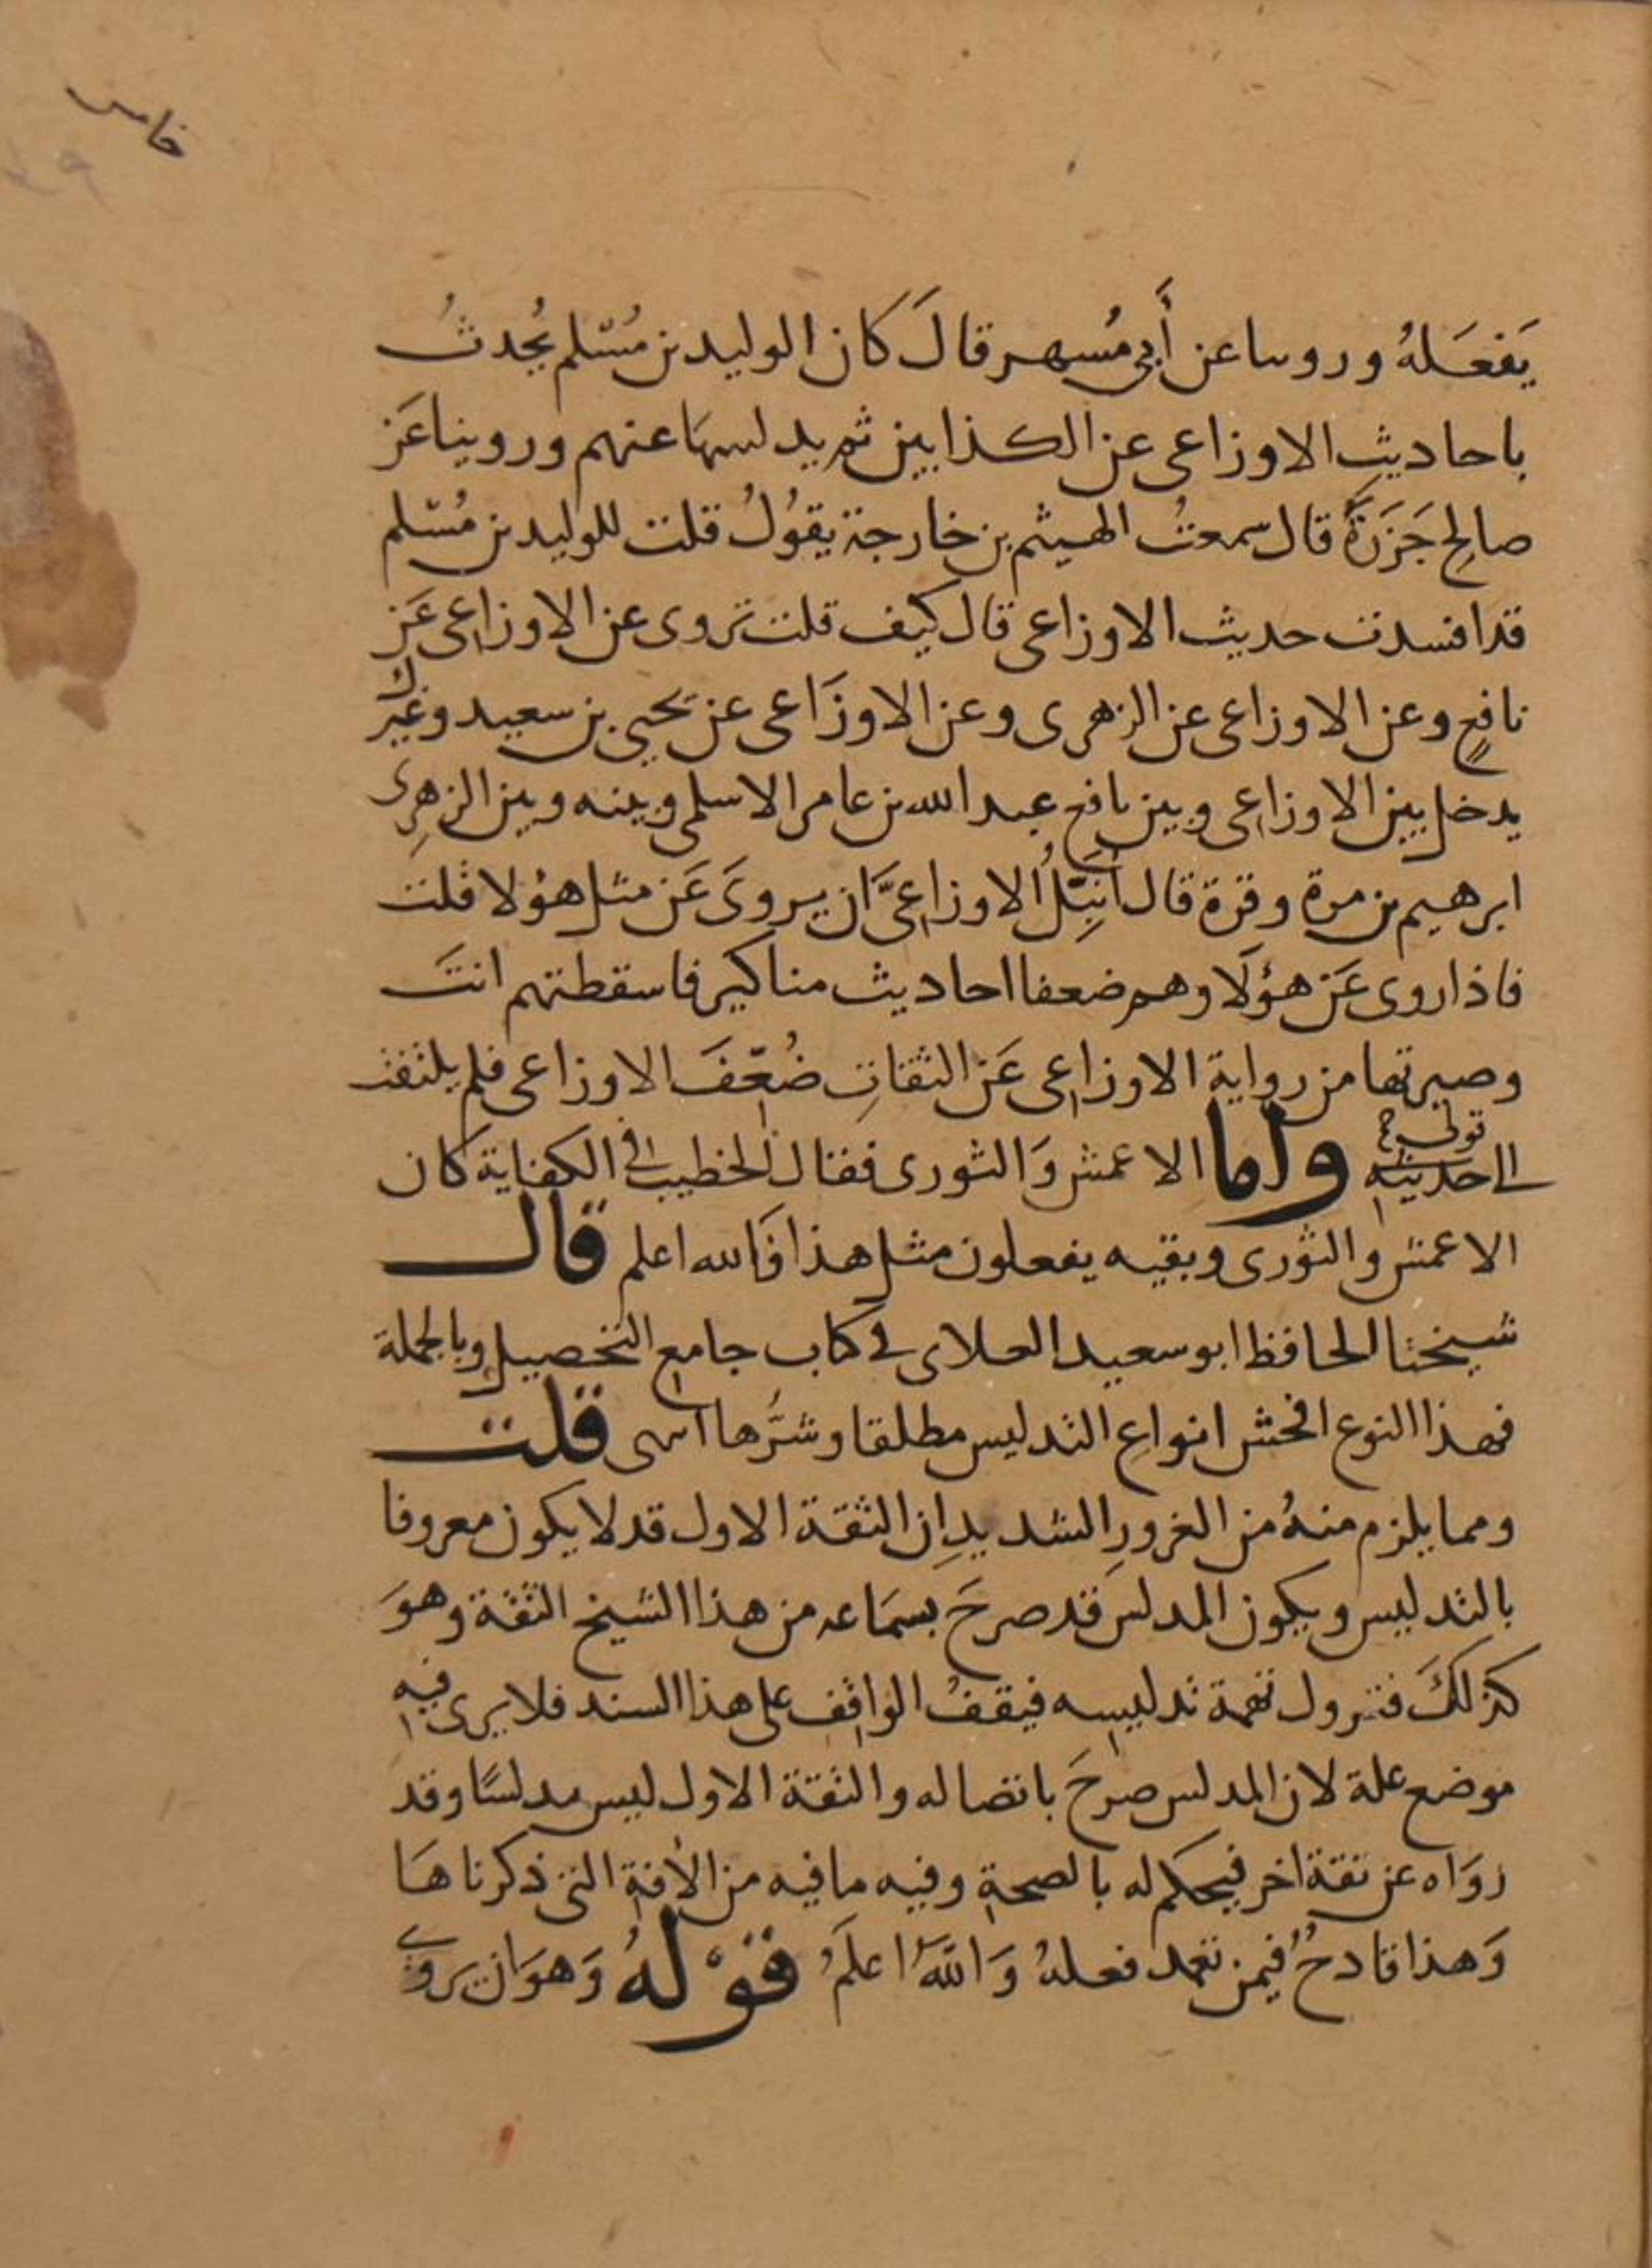 خامس
يَفعَلهُ وروىنا عن أَبي مُسهر قالَ كان الوليد بن مُسْلم يُحدثُ
باحاديثِ الاوزاعى عن الكذابين ثم يدلسها عنهم وروينا عَن
صالحِ جَزَرَةَ قال سمعتُ الهيثم بن خارجة يقوُلُ قلت للوليد بن مُسْلم
قد افسدت حديث الاوزاعى قال كيف قلت تروى عن الاوزاعى عَن
نافعٍ وعن الاوزاعى عن الزهرى وعن الاوزَاعى عن يحيى بن سعيد وغيرك
يدخل بين الاوزاعى وبين نافع عبد الله بن عامر الاسلمى وبينه وبين الزهرِى
ابرهيم بن مرة وقرة قال اُنَبِّلُ الاوزاعىَّ ان يروىَ عَن مثل هؤلا قلت
فاذا روى عَن هؤلَا وهم ضعفا احاديث مناكير فاسقطتهم انتَ
وصيرتها من رواية الاوزاعى عَن الثقاتِ ضُعِّفَ الاوزاعى فلم يلتفت
الى حديثه قولى واما الاعمش وَالثورى فقال الخطيب فى الكفاية كان
الاعمش والثورى وبقيه يفعلون مثل هذا فَالله اعلم قال
شيخنا الحافظ ابو سعيد العلاى فى كتاب جامع التحصيل وبالجملة
فهذا النوع افحش انواع التدليس مطلقا وشرُّها انتهى قلت
ومما يلزم منهُ من الغرورِ الشديدِ ان الثقة الاول قد لا يكون معروفا
بالتدليس ويكون المدلس قد صرحَ بسَمَاعه من هذا الشيخ الثقة وهوَ
كذلكَ فتزول تهمة تدليسه فيقفُ الواقف على هذا السند فلا يرى فيه
موضع علة لان المدلس صرحَ باتصاله والثقة الاول ليس مدلسًا وقد
رَوَاه عن ثقة اخر فيحكم له بالصحةِ وفيه ما فيه من الافةِ التى ذكرناهَا
وَهذا قادحُ فيمن تعمد فعلهُ وَاللهُ اعلمُ قوْلهُ وَهوَ ان يروىَ